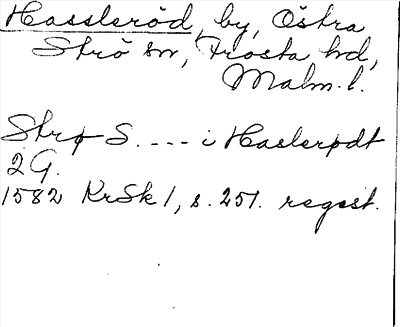 Hassleröd, by, Östra
Strö sn, Frosta hd,
Malm. l.
Strø S. --- i Haslerødt
2 G.
1582 KrSk 1, s. 251. regest.